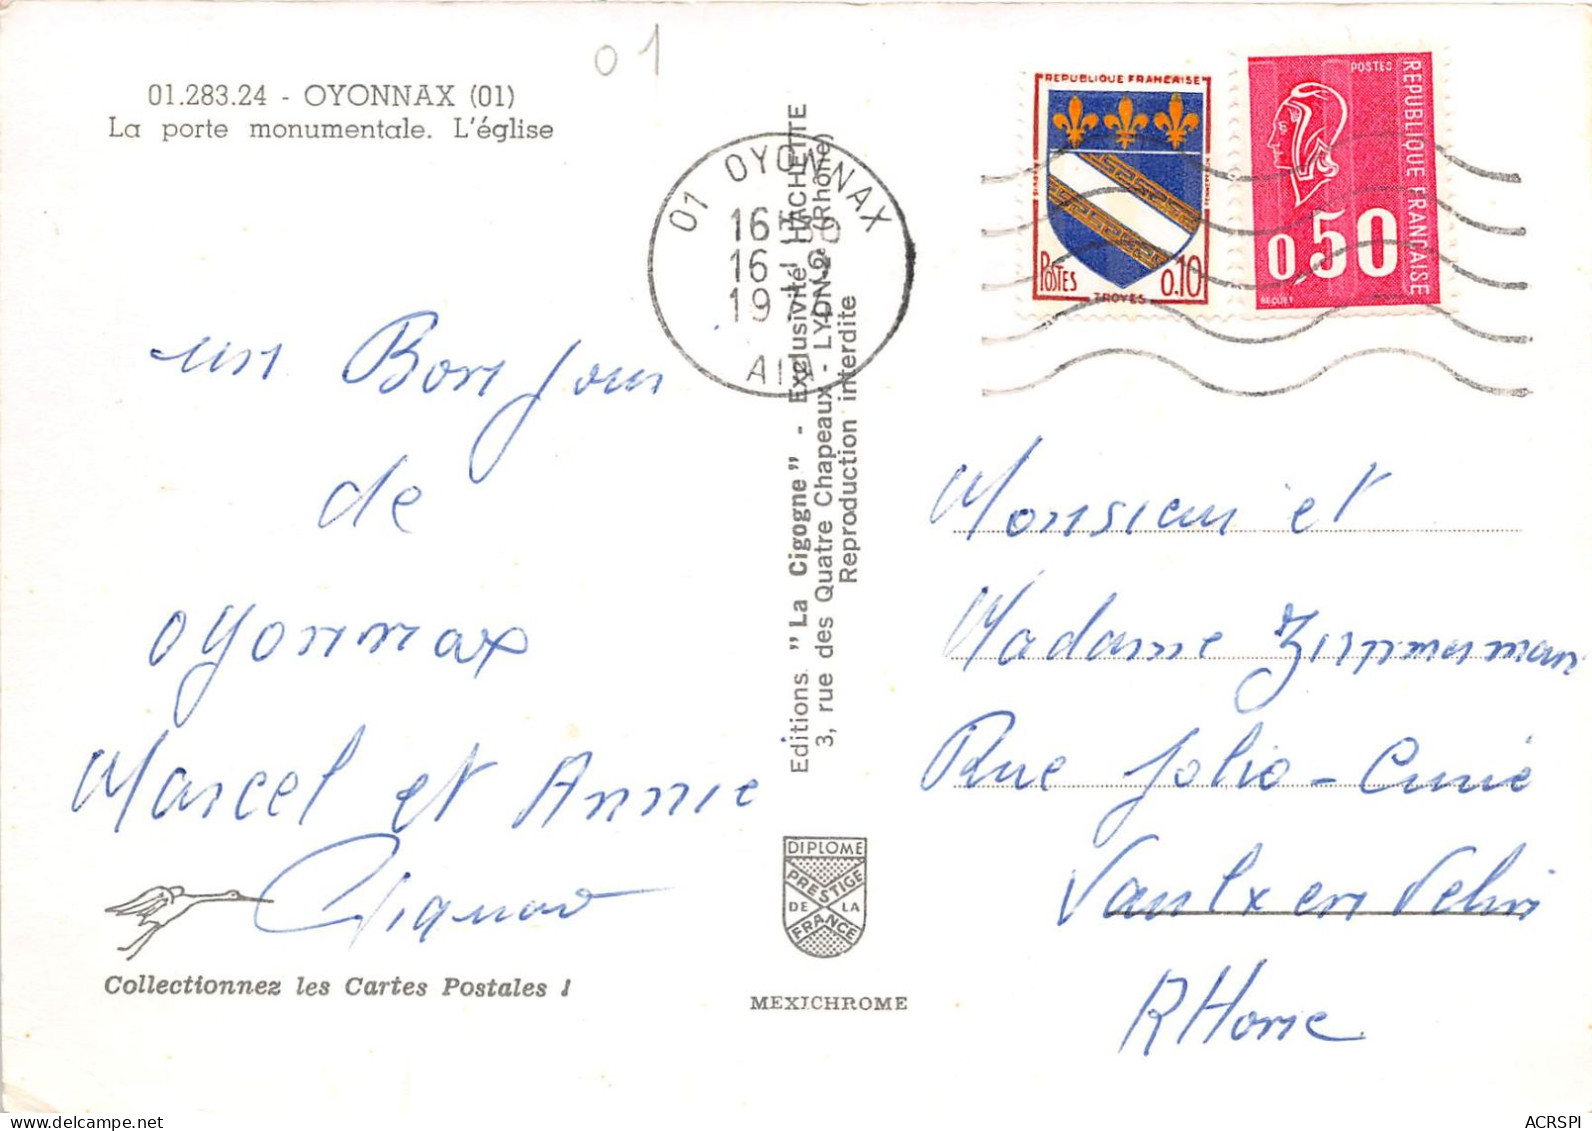 01
01.283.24 - OYONNAX (01)
La porte monumentale. L'église
un Bonjour
de
oyonnax
Marcel et Annie
Collectionnez les Cartes Postales !
01 OYONNAX
AIN
Editions "La Cigogne" - Exclusivité HACHETTE
3, rue des Quatre Chapeaux - LYON-2e (Rhône)
Reproduction interdite
DIPLOME
PRESTIGE
DE LA
FRANCE
MEXICHROME
REPUBLIQUE FRANCAISE
POSTES
0.10
TROYES
POSTES
REPUBLIQUE FRANCAISE
0,50
BEQUET
Monsieur et
Madame Zimmerman
Rue Jolio-Curie
Vaulx en Velin
RHone
ACRSPI